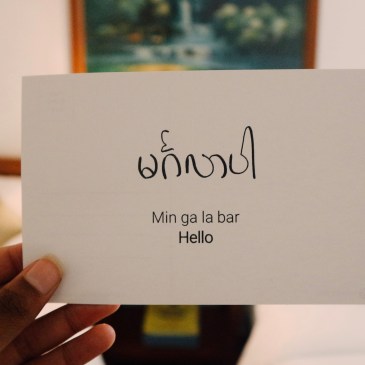 မင်္ဂလာပါ
Min ga la bar
Hello